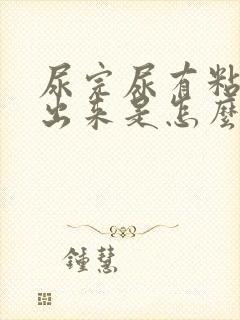 尿完尿有粘
出来是怎麼
鍾慧